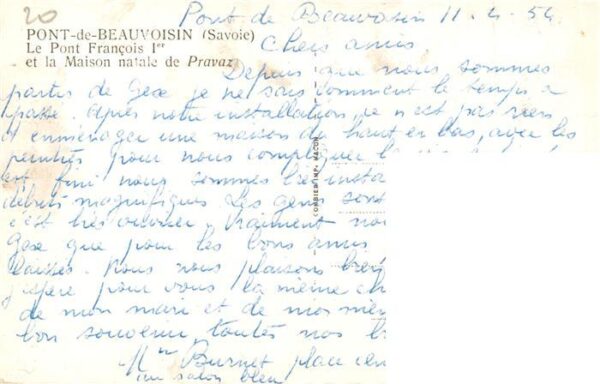 20
Pont de Beauvoisin 11.4.54.
PONT-de-BEAUVOISIN (Savoie)
Le Pont François Ier
et la Maison natale de Pravaz
Chers amis,
Depuis que nous sommes
partis de Gex je ne sais comment le temps a
passé. Après notre installation, ce n'est pas rien
d'emménager une maison du haut en bas, avec les
peintres pour nous compliquer l
est fini nous sommes bien
débuts magnifiques. Les gens sont
c'est très Vraiment
Gex que pour les bons amis
laissés. Nous nous plaisons bien
j'espère pour vous la même
de mon mari et de moi
bon souvenir toutes nos
Mme Burnet place
au salon bleu
COMBIER IMP. MACON